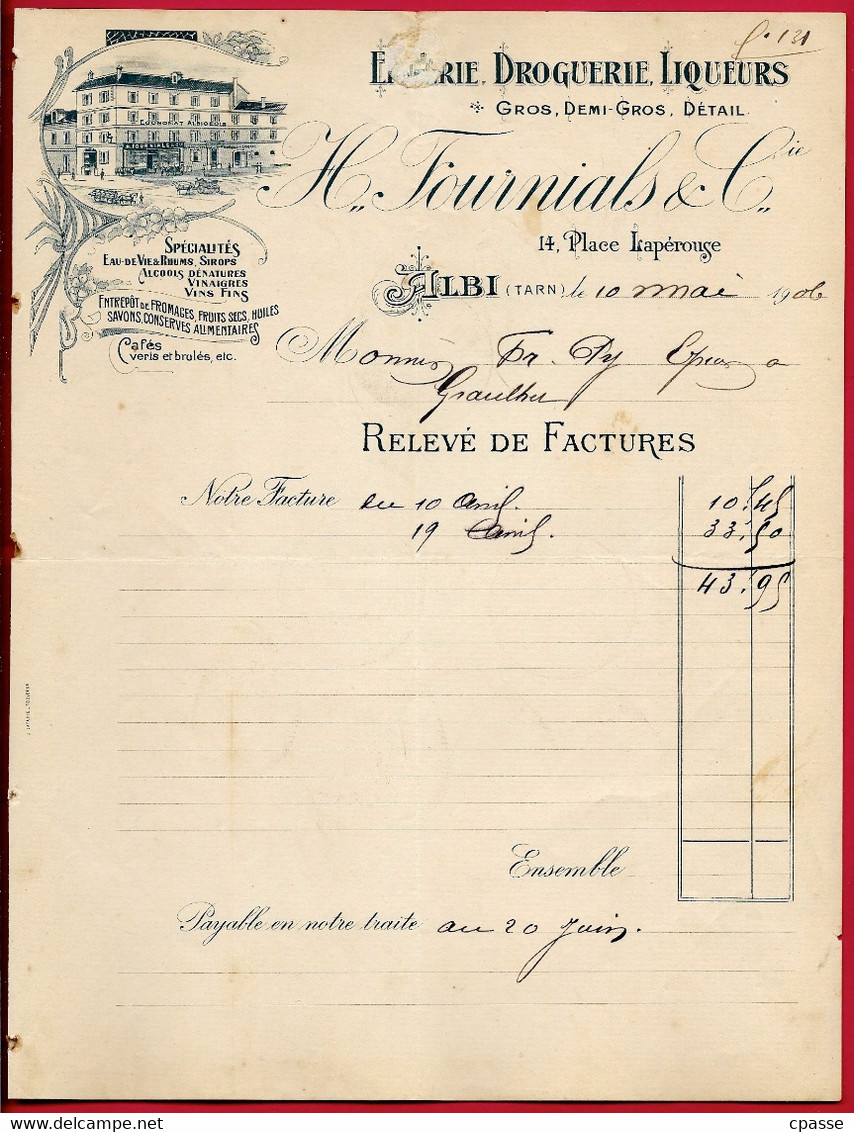 f. 131
Epicerie, Droguerie, Liqueurs
Gros, Demi-Gros, Détail
H. Fournials & Cie
14, Place Lapérouse
Albi (Tarn) le 10 mai 1906
Economat Albigeois
H. Fournials & Cie
Spécialités
Eau-de-Vie & Rhums, Sirops
Alcools dénatures
Vinaigres
Vins Fins
Entrepôt de Fromages, Fruits secs, Huiles
Savons, Conserves alimentaires
Cafés
verts et brulés, etc.
Monsieur Fr. Py Epicier a
Graulhet
Relevé de Factures
Notre Facture du 10 Avril. 10.45
19 Avril. 33.50
43.95
Ensemble
Payable en notre traite au 20 Juin.
cpasse